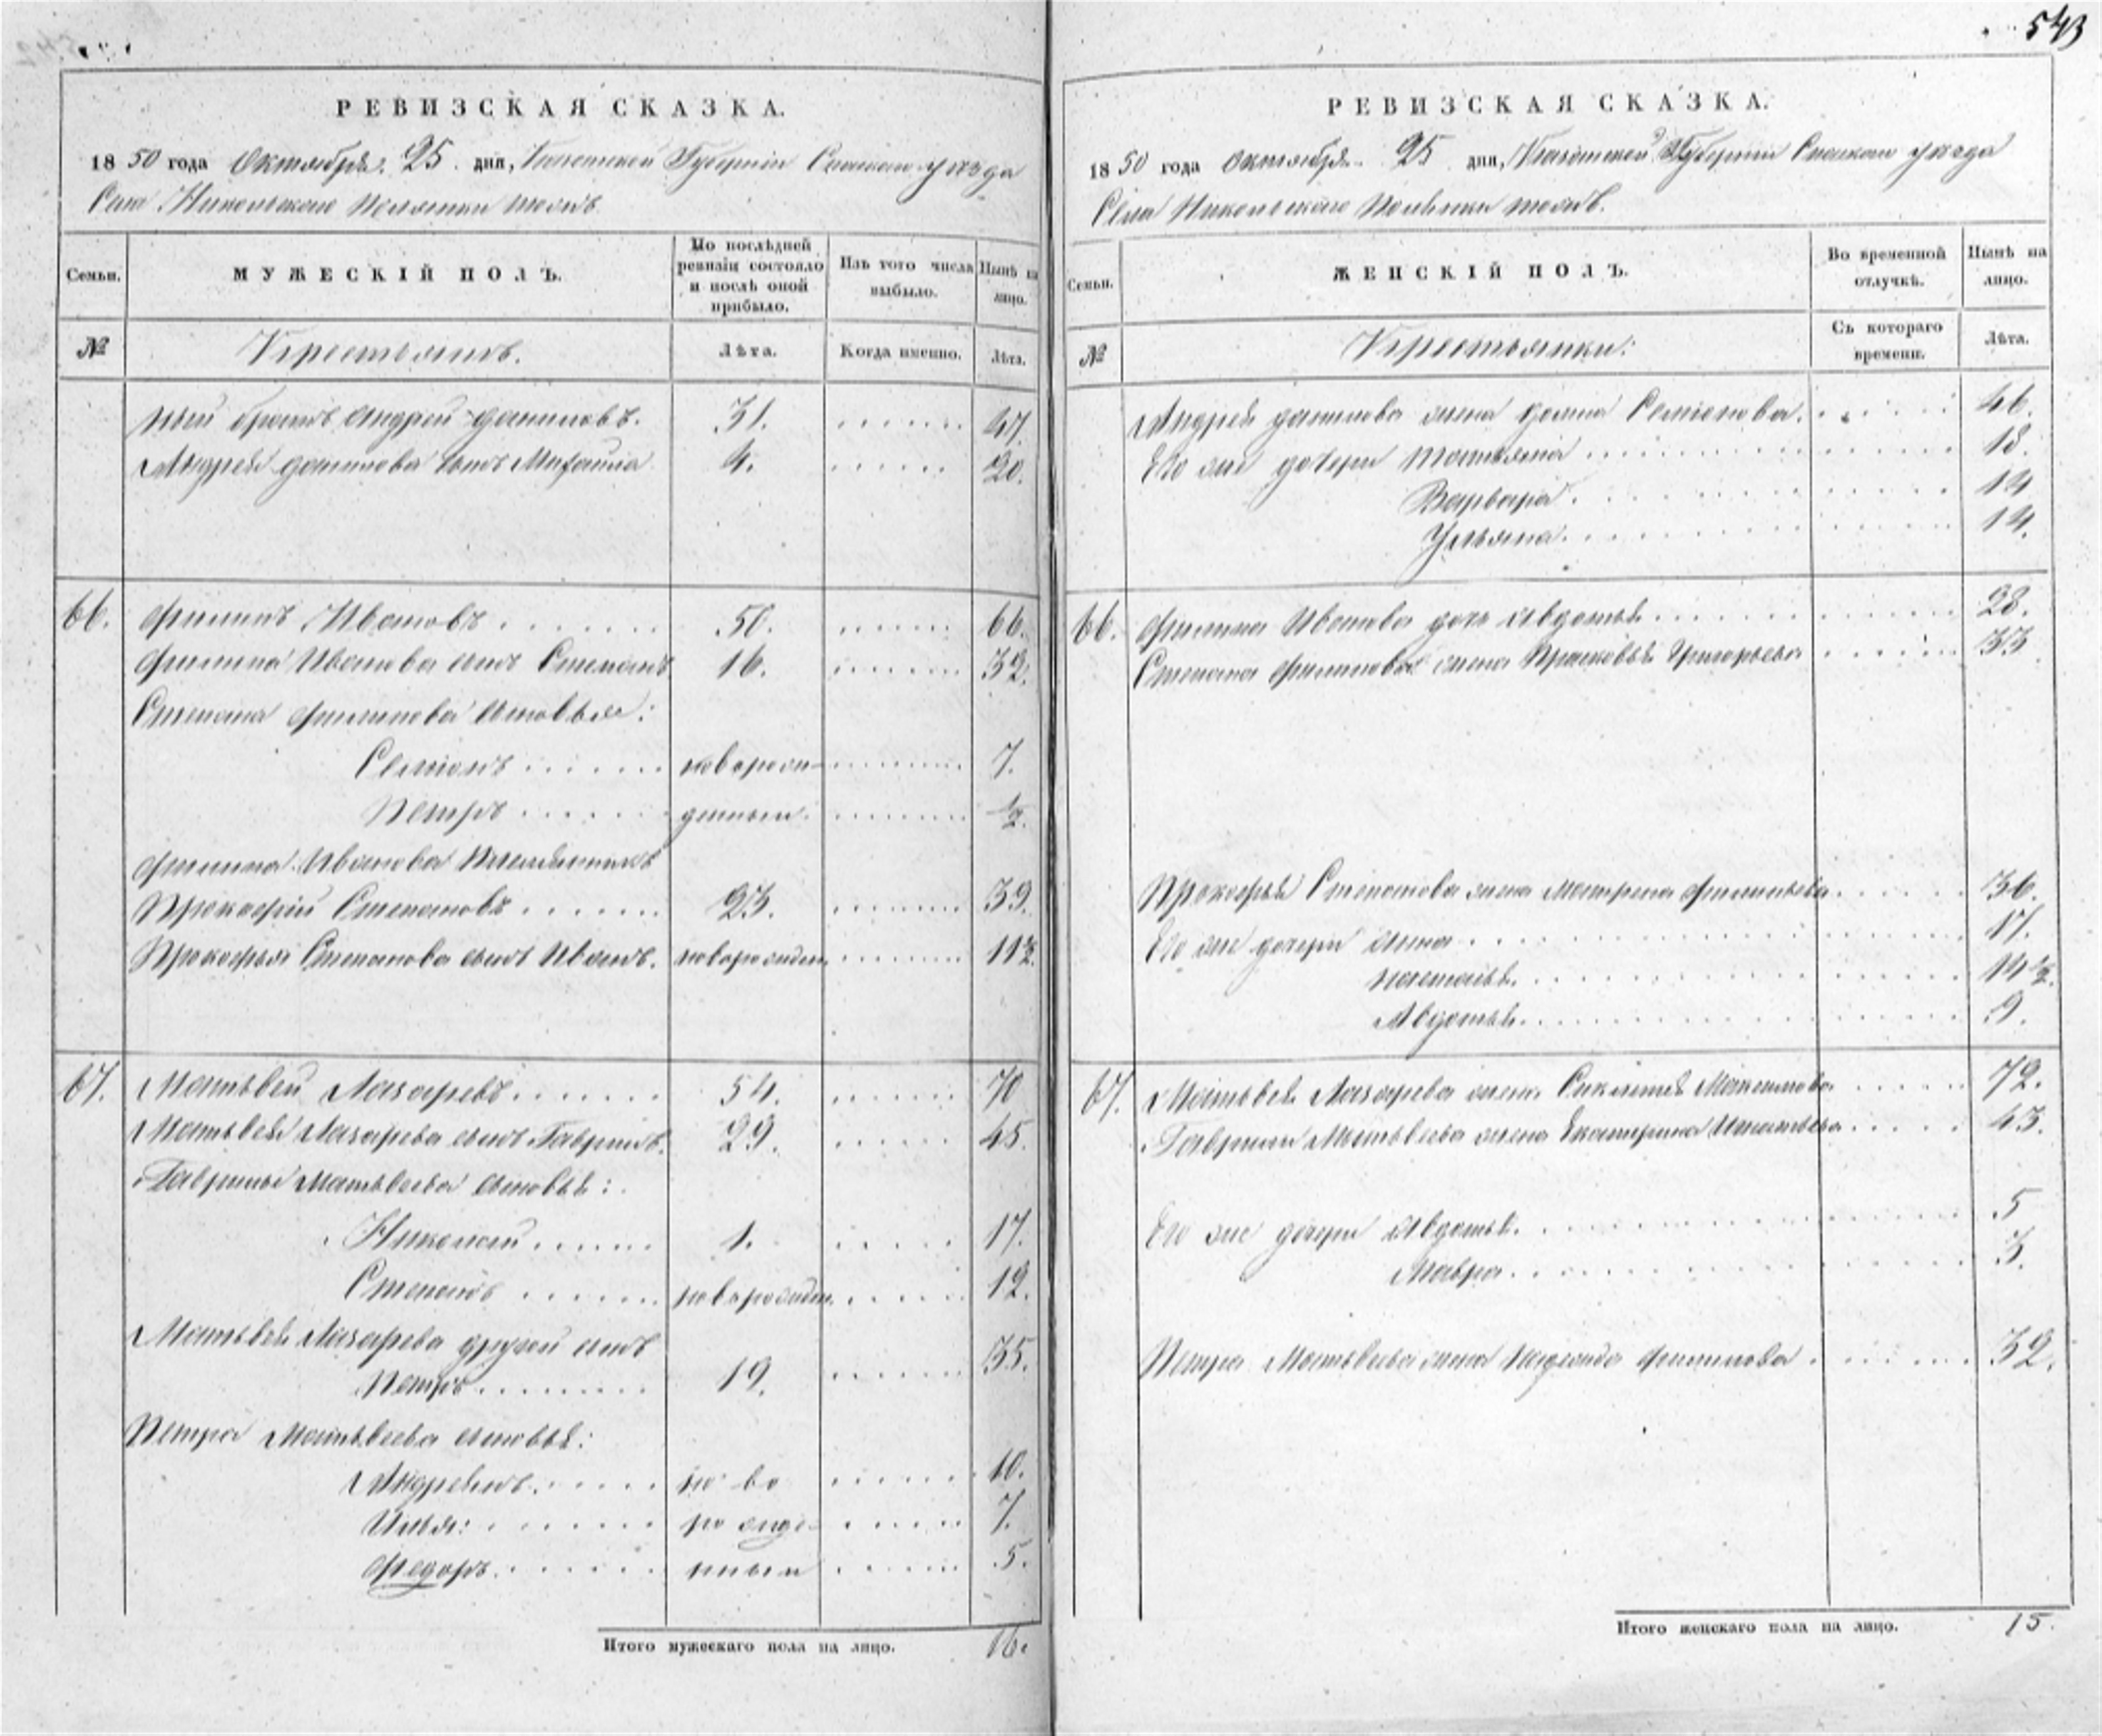 543
РЕВИЗСКАЯ СКАЗКА.
1850 года Октября 25 дня, Казанской Губернии Спаскаго уезда
Села Никольскаго Полянки тожъ.
Семьи. МУЖЕСКІЙ ПОЛЪ. По послѣдней ревизіи состояло и послѣ оной прибыло. Изъ того числа выбыло. Нынѣ на лицо.
№ Крестьянъ. Лѣта. Когда именно. Лѣта.
ный братъ Андрей Даниловъ. 31. 47.
Андрея Данилова сынъ Михаила 4. 20.
66. Филипъ Ивановъ 50. 66.
Филипа Иванова сынъ Степанъ 16. 32.
Степана Филипова сыновья:
Семионъ новорож- 7.
Петръ денныи 1/2.
Филипа Иванова племянникъ
Прокофий Степановъ 23. 39.
Прокофья Степанова сынъ Иванъ. новорожден. 11 1/2.
67. Матвей Лазаревъ 54. 70
Матвея Лазарева сынъ Гаврила. 29. 45.
Гаврилы Матвеева сыновья:
Николай 1. 17.
Степанъ новорожден. 12.
Матвея Лазарева другой сынъ
Петръ 19. 35.
Петра Матвеева сыновья:
Андреянъ но во 10.
Илья: рожде- 7.
Федоръ. нныи 5.
Итого мужескаго пола на лицо. 16.
РЕВИЗСКАЯ СКАЗКА.
1850 года Октября 25 дня, Казанской Губернии Спаскаго уезда
Села Никольскаго Полянки тожъ.
Семьи. ЖЕНСКІЙ ПОЛЪ. Во временной отлучкѣ. Нынѣ на лицо.
№ Крестьянки: Съ котораго времени. Лѣта.
Андрея Данилова жена Семионова. 46.
Его же дочери Татьяна 18.
Варвара. 14
Ульяна. 14.
66. Филипа Иванова дочь Авдотья 28.
Степана Филипова жена Прасковья Григорьева 33
Прокофья Степанова жена Матрена Филипьева 36.
Его же дочери Анна 17.
Настасья. 14 1/2.
Авдотья. 9.
67. Матвея Лазарева жена Максимова 72.
Гаврилы Матвеева жена Екатерина Игнатьева 43.
Его же дочери Авдотья. 5
Мавра. 3.
Петра Матвеева жена Надежда Филипова 32.
Итого женскаго пола на лицо. 15.